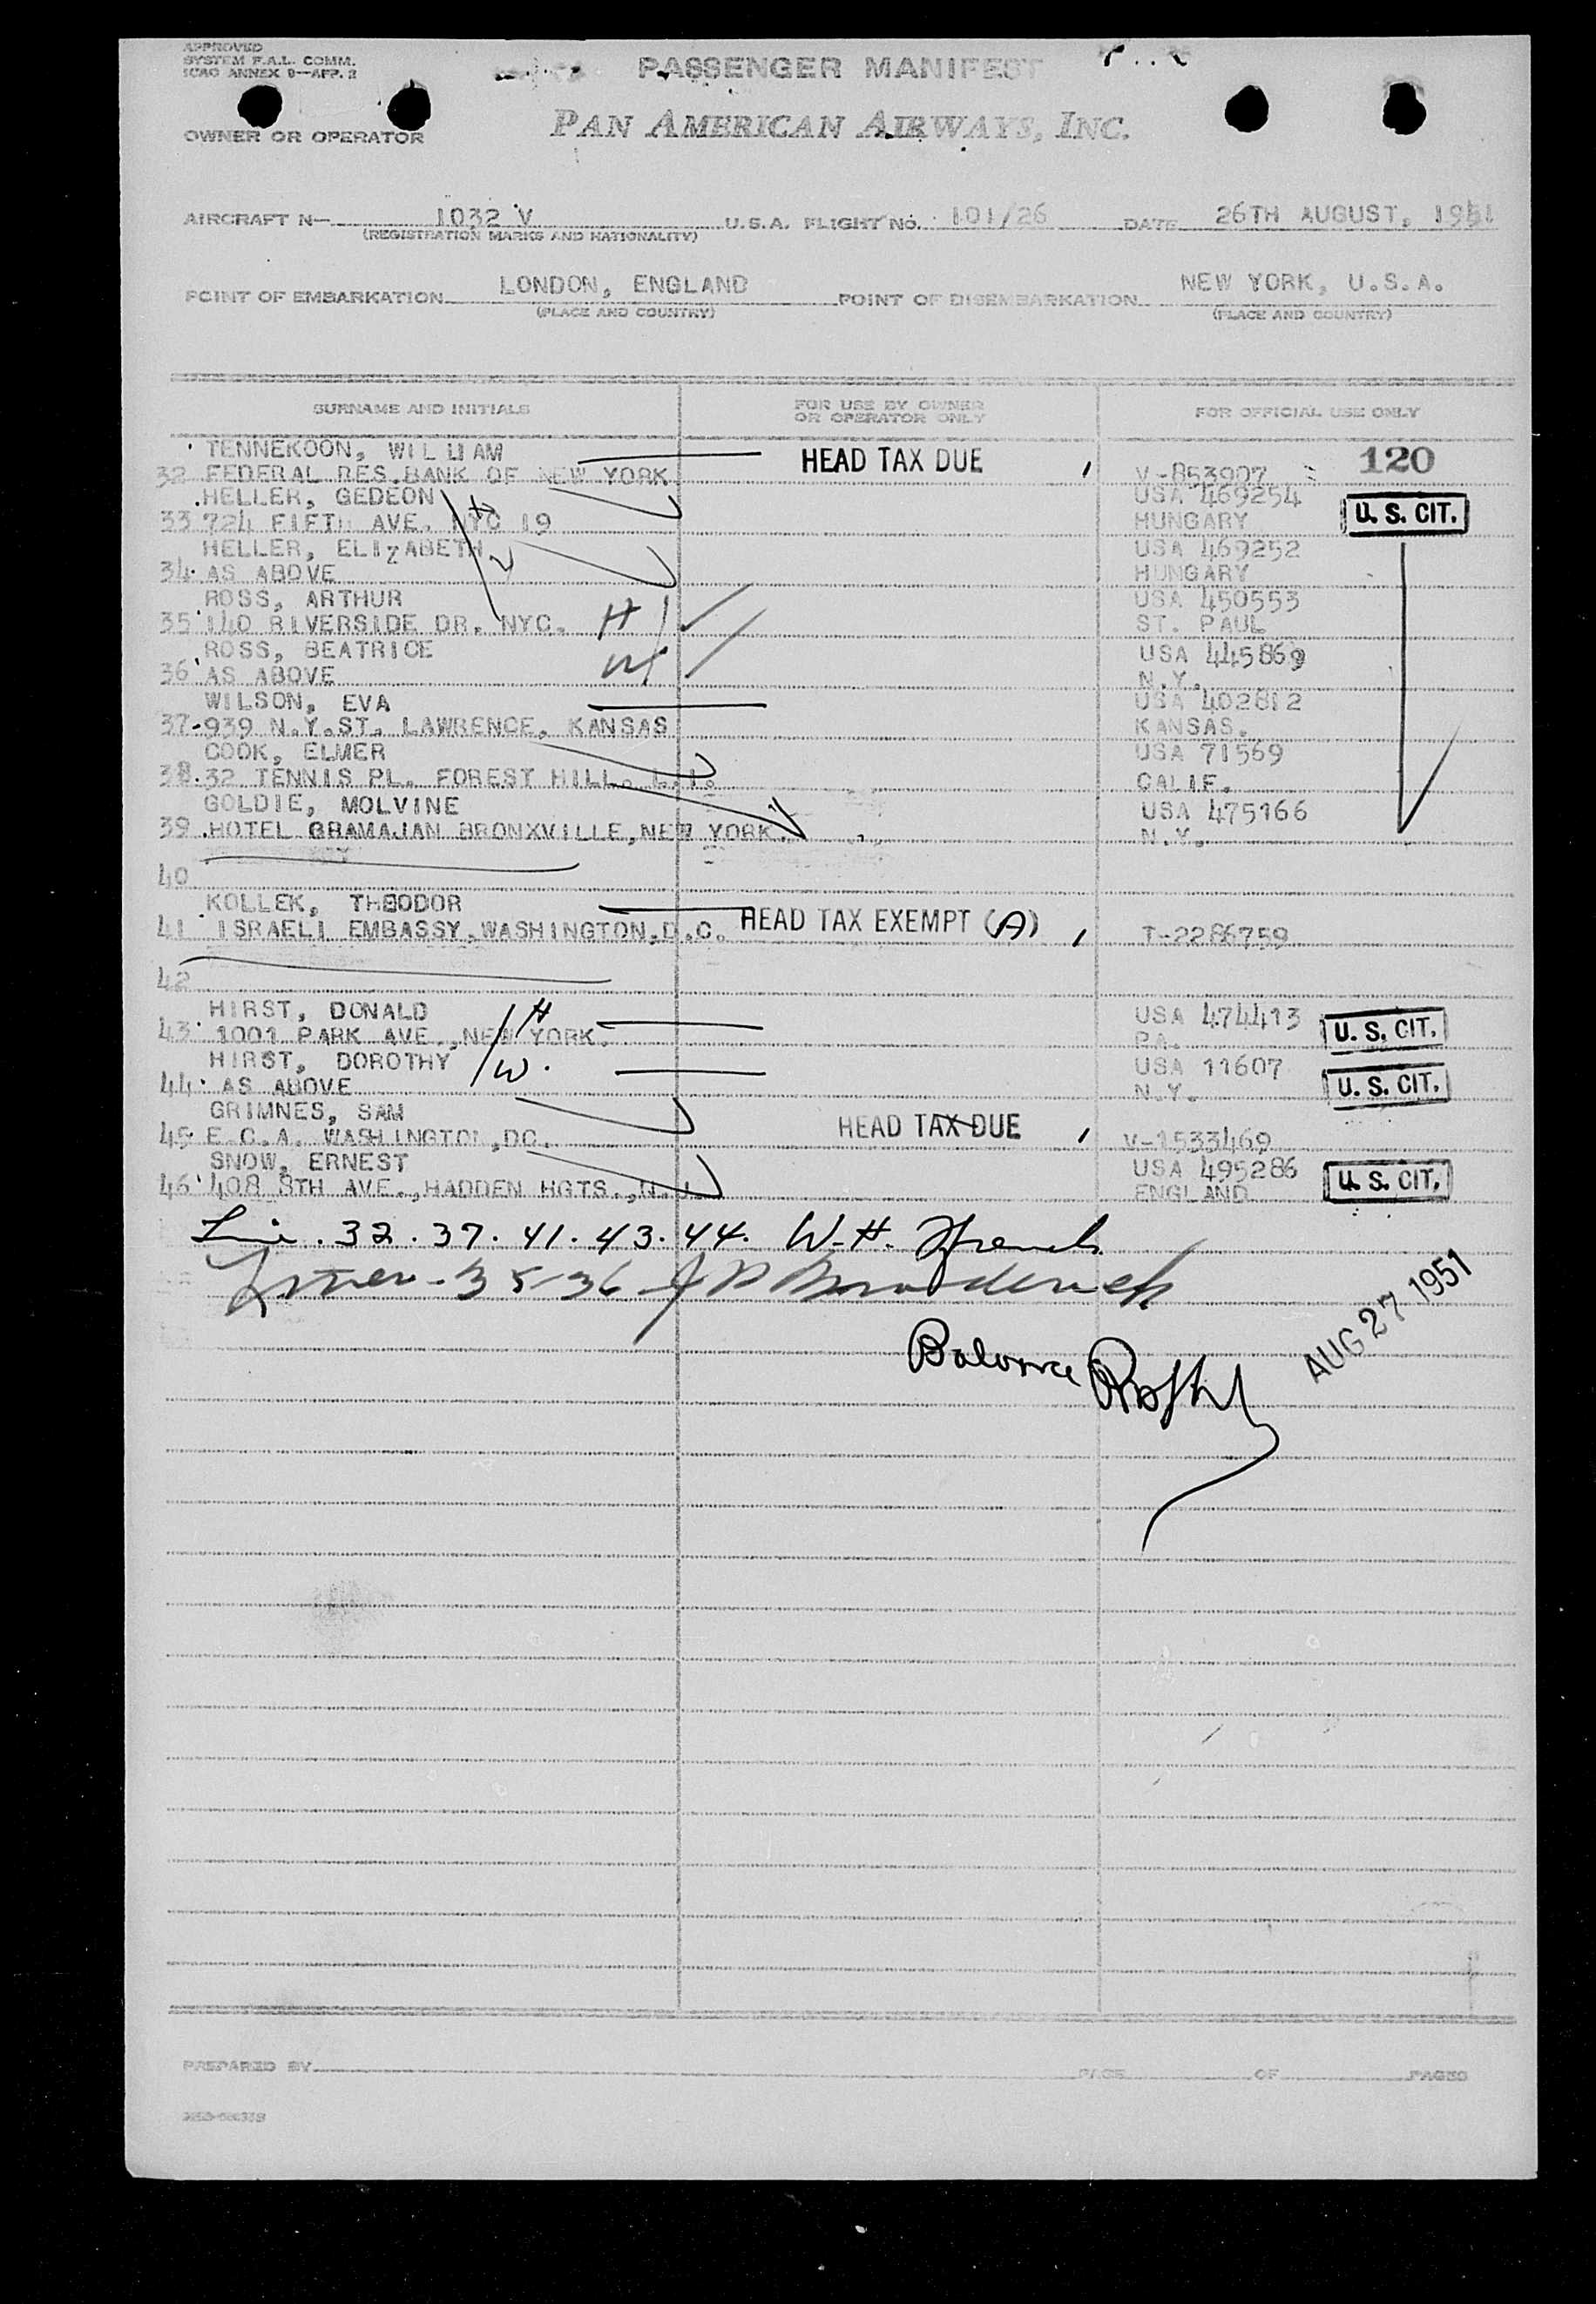 APPROVED
SYSTEM F.A.L. COMM.
ICAO ANNEX 9—APP. 2
PASSENGER MANIFEST
OWNER OR OPERATOR
PAN AMERICAN AIRWAYS, INC.
AIRCRAFT N— 1032 V U.S.A. FLIGHT NO. 101/26 DATE 26TH AUGUST, 1951
(REGISTRATION MARKS AND NATIONALITY)
POINT OF EMBARKATION LONDON, ENGLAND POINT OF DISEMBARKATION NEW YORK, U.S.A.
(PLACE AND COUNTRY) (PLACE AND COUNTRY)
SURNAME AND INITIALS FOR USE BY OWNER OR OPERATOR ONLY FOR OFFICIAL USE ONLY
TENNEKOON, WILLIAM HEAD TAX DUE 120
32 FEDERAL RES.BANK OF NEW YORK V-853907
HELLER, GEDEON H USA 469254
33 724 FIFTH AVE. NYC 19 HUNGARY U. S. CIT.
HELLER, ELIZABETH W USA 469252
34 AS ABOVE HUNGARY
ROSS, ARTHUR USA 450553
35 140 RIVERSIDE DR. NYC. H ST. PAUL
ROSS, BEATRICE USA 445869
36 AS ABOVE W N.Y.
WILSON, EVA USA 402812
37 939 N.Y.ST. LAWRENCE, KANSAS KANSAS.
COOK, ELMER USA 71569
38 32 TENNIS PL. FOREST HILL. L.I. CALIF.
GOLDIE, MOLVINE USA 475166
39 HOTEL GRAMAJAN BRONXVILLE,NEW YORK. N.Y.
40
KOLLEK, THEODOR HEAD TAX EXEMPT (A)
41 ISRAELI EMBASSY,WASHINGTON,D.C. T-2286759
42
HIRST, DONALD H USA 474413
43 1001 PARK AVE.,NEW YORK. PA. U. S. CIT.
HIRST, DOROTHY W. USA 11607
44 AS ABOVE N.Y. U. S. CIT.
GRIMNES, SAM HEAD TAX DUE
45 E.C.A. WASHINGTON,DC. V-1533469
SNOW, ERNEST USA 495286
46 408 8TH AVE.,HADDEN HGTS.,N.J. ENGLAND U. S. CIT.
32. 37. 41. 43. 44. W. H. French
35-36 J P Broderick
AUG 27 1951
Balance
PREPARED BY PAGE OF PAGES